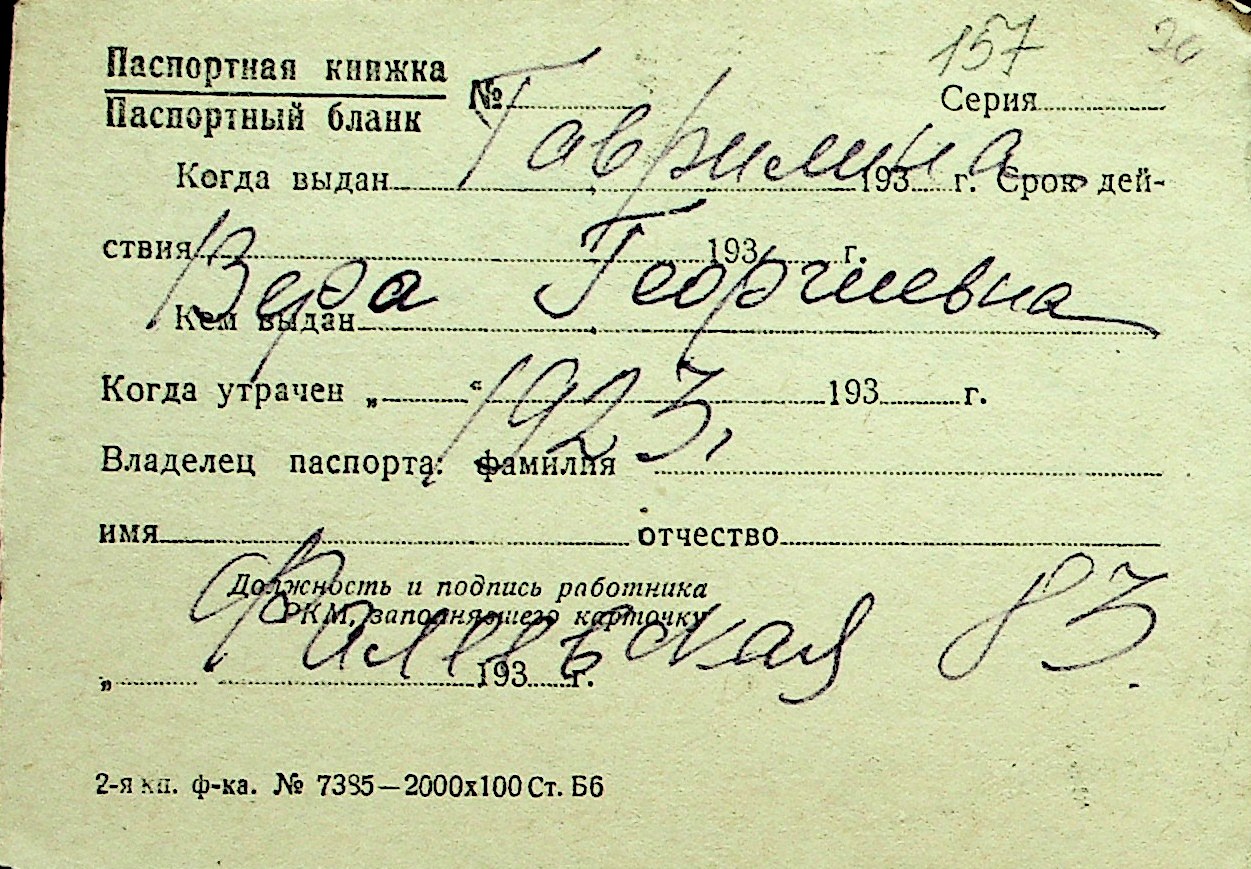 157 26
Паспортная книжка
Паспортный бланк
№ Серия
Гаврилина
Когда выдан 193 г. Срок дей-
ствия 193 г.
Вера Георгиевна
Кем выдан
Когда утрачен „ “ 193 г.
1923,
Владелец паспорта: фамилия
имя отчество
Должность и подпись работника
РКМ, заполнявшего карточку
Филевская 83.
„ 193 г.
2-я кн. ф-ка. № 7385—2000х100 Ст. Б6